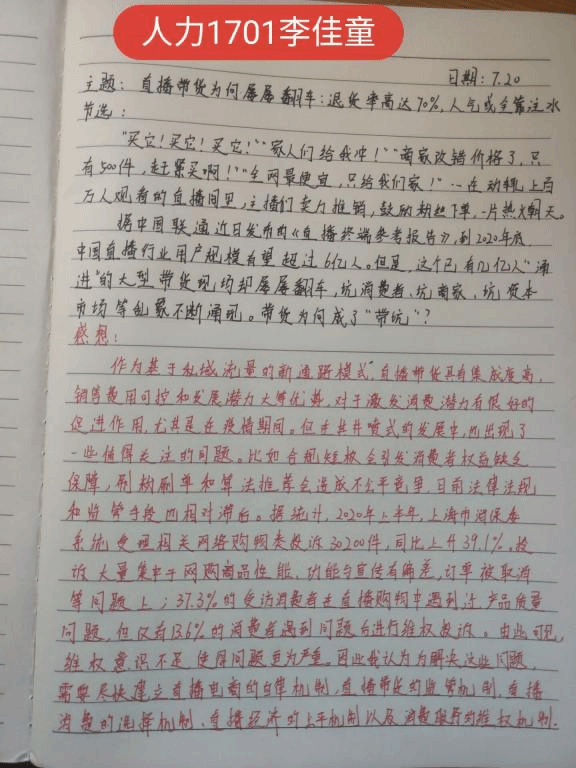 人力1701李佳童
日期：7.20
主题：直播带货为何屡屡翻车：退货率高达70%，人气或全靠注水
节选：
"买它！买它！买它！""家人们给我冲！""商家改错价格了，只
有500件，赶紧买啊！""全网最便宜，只给我们家！"…在动辄上百
万人观看的直播间里，主播们卖力推销，鼓励粉丝下单，一片热火朝天。
据中国联通近日发布的《直播终端参考报告》，到2020年底
中国直播行业用户规模有望超过6亿人。但是，这个已有几亿人"涌
进"的大型带货现场却屡屡翻车，坑消费者、坑商家、坑资本
市场等乱象不断涌现。带货为何成了"带坑"？
感想：
作为基于私域流量的新通路模式，直播带货具有集成度高，
销售费用可控和发展潜力大等优势，对于激发消费潜力有很好的
促进作用，尤其是在疫情期间。但在其井喷式的发展中，也出现了
一些值得关注的问题。比如合规短板会引发消费者权益缺乏
保障，刷榜刷单和算法推荐会造成不公平竞争，目前法律法规
和监管手段也相对滞后。据统计，2020年上半年，上海市消保委
系统受理相关网络购物类投诉30200件，同比上升39.1%。投
诉大量集中于网购商品性能、功能与宣传有偏差，订单被取消
等问题上；37.3%的受访消费者在直播购物中遇到过产品质量
问题，但仅有13.6%的消费者遇到问题会进行维权投诉。由此可见，
维权意识不足使得问题更为严重。因此我认为为解决这些问题，
需要尽快建立直播电商的自律机制，直播带货的监管机制，直播
消费的选择机制、直播经济的上平机制以及消费服务的维权机制.